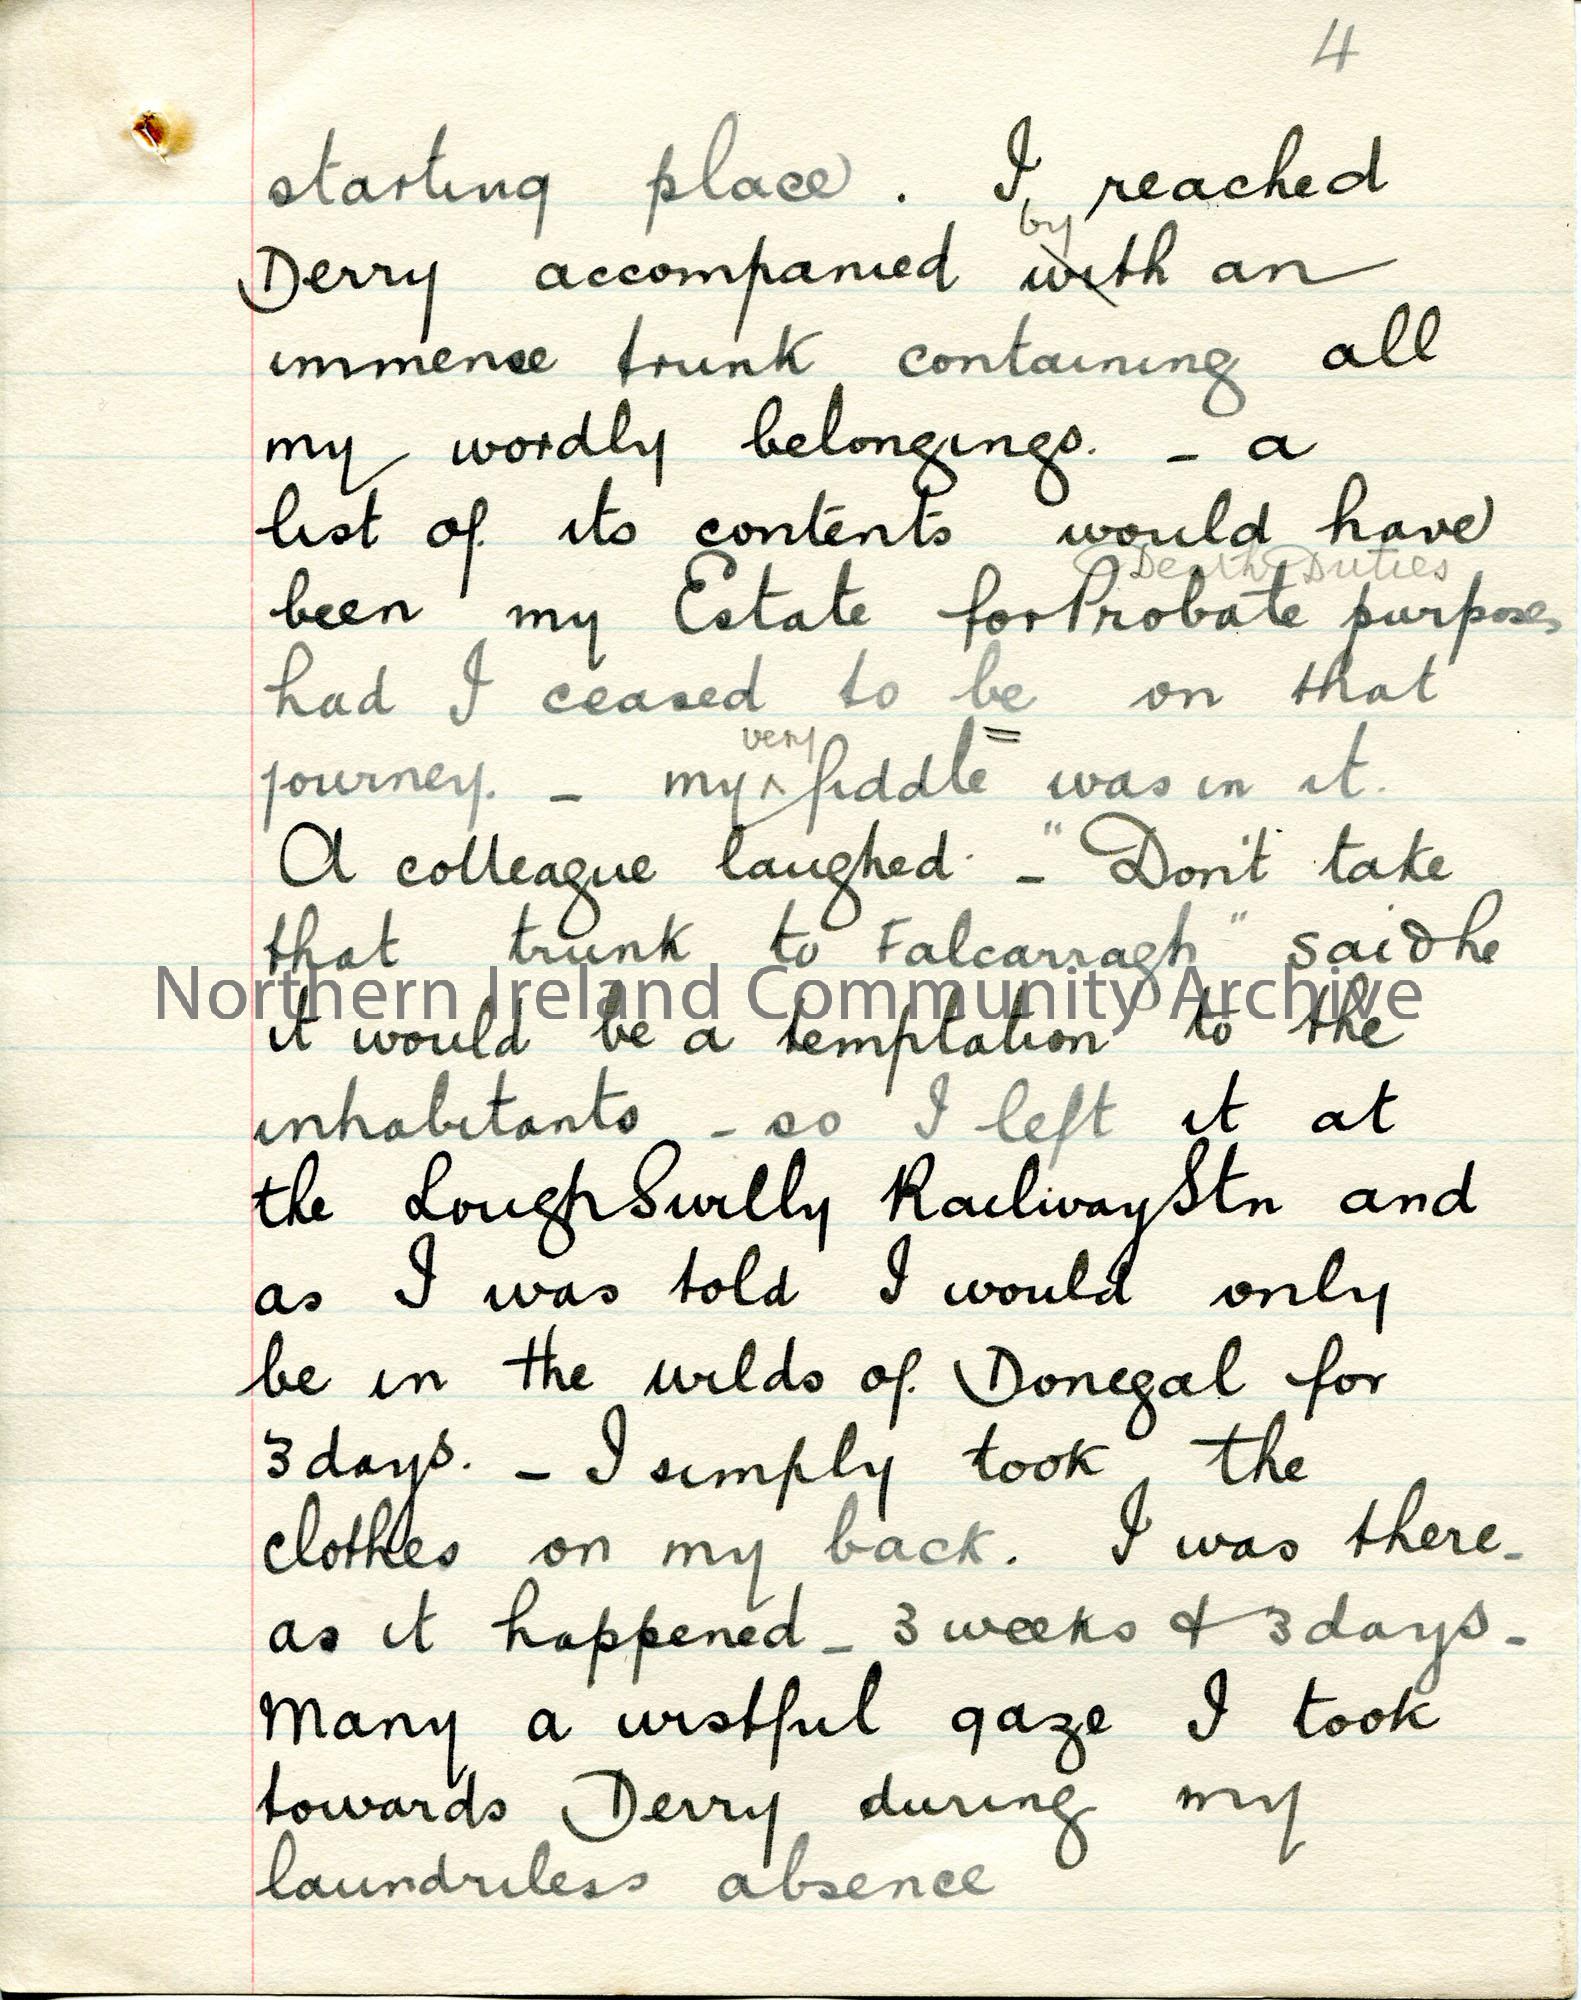 4
starting place. I reached
by
Derry accompanied with an
immense trunk containing all
my wordly belongings. - a
list of its contents would have
Death Duties
been my Estate for Probate purposes
had I ceased to be on that
very
journey. - my ^ fiddle was in it.
A colleague laughed - "Don't take
that trunk to Falcarragh" said he
Northern Ireland Community Archive
it would be a temptation to the
inhabitants - so I left it at
the Lough Swilly Railway Stn and
as I was told I would only
be in the wilds of Donegal for
3 days. - I simply took the
clothes on my back. I was there -
as it happened - 3 weeks & 3 days -
Many a wistful gaze I took
towards Derry during my
laundriless absence